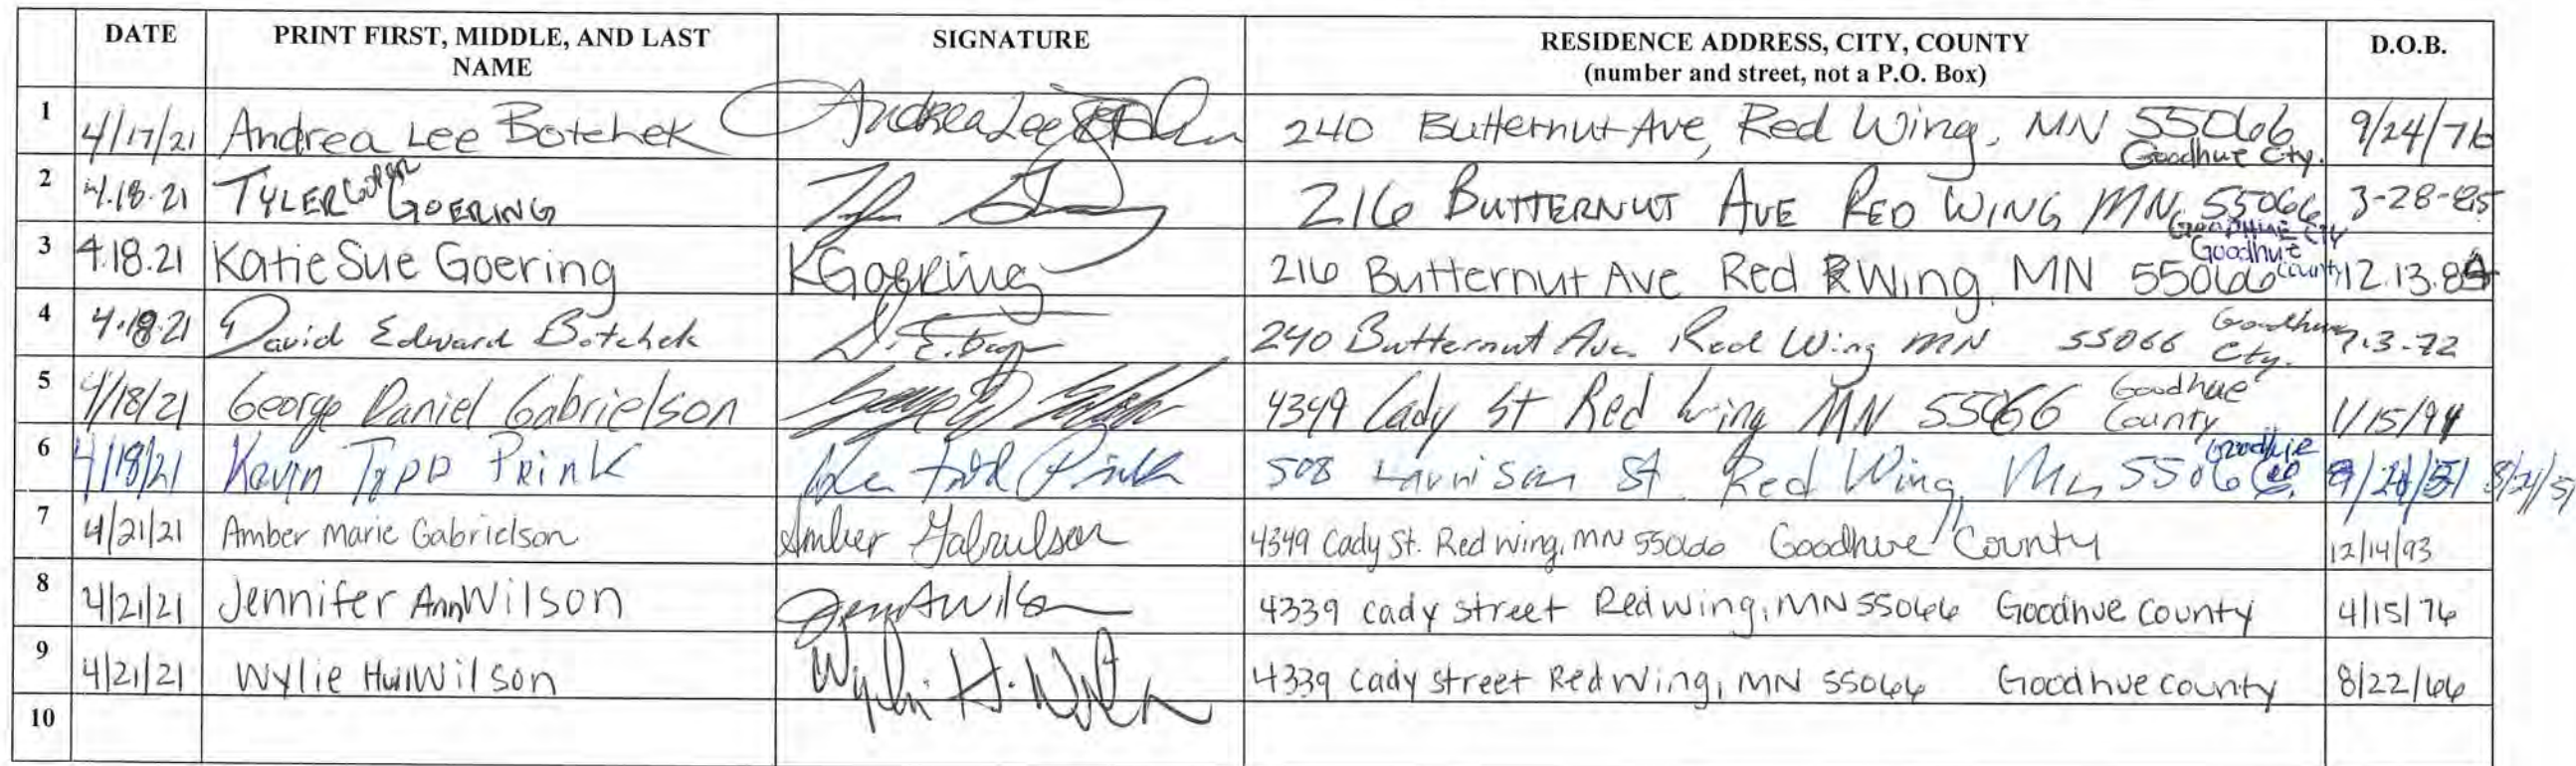 DATE PRINT FIRST, MIDDLE, AND LAST NAME SIGNATURE RESIDENCE ADDRESS, CITY, COUNTY (number and street, not a P.O. Box) D.O.B.
1 4/17/21 Andrea Lee Botchek Andrea Lee 240 Butternut Ave, Red Wing, MN 55066 Goodhue Cty. 9/24/76
2 4.18.21 TYLER GOERING 216 BUTTERNUT AVE RED WING MN 55066 GOODHUE CTY 3-28-85
3 4.18.21 Katie Sue Goering KGoering 216 Butternut Ave Red Wing, MN 55066 Goodhue County 12.13.84
4 4.18.21 David Edward Botchek 240 Butternut Ave. Red Wing MN 55066 Goodhue Cty. 7.3-72
5 4/18/21 George Daniel Gabrielson 4349 Cady St Red Wing MN 55066 Goodhue County 1/15/94
6 4/18/21 Kevin TODD PRINK 508 St. Red Wing, Mn 55066 Goodhue Co. 8/21/51
7 4/21/21 Amber Marie Gabrielson Amber Gabrielson 4349 Cady St. Red Wing, MN 55066 Goodhue County 12/14/93
8 4/21/21 Jennifer Ann Wilson Jenn A Wilson 4339 Cady Street Red Wing, MN 55066 Goodhue County 4/15/76
9 4/21/21 Wylie Wilson Wylie H. Wilson 4339 Cady Street Red Wing, MN 55066 Goodhue County 8/22/66
10